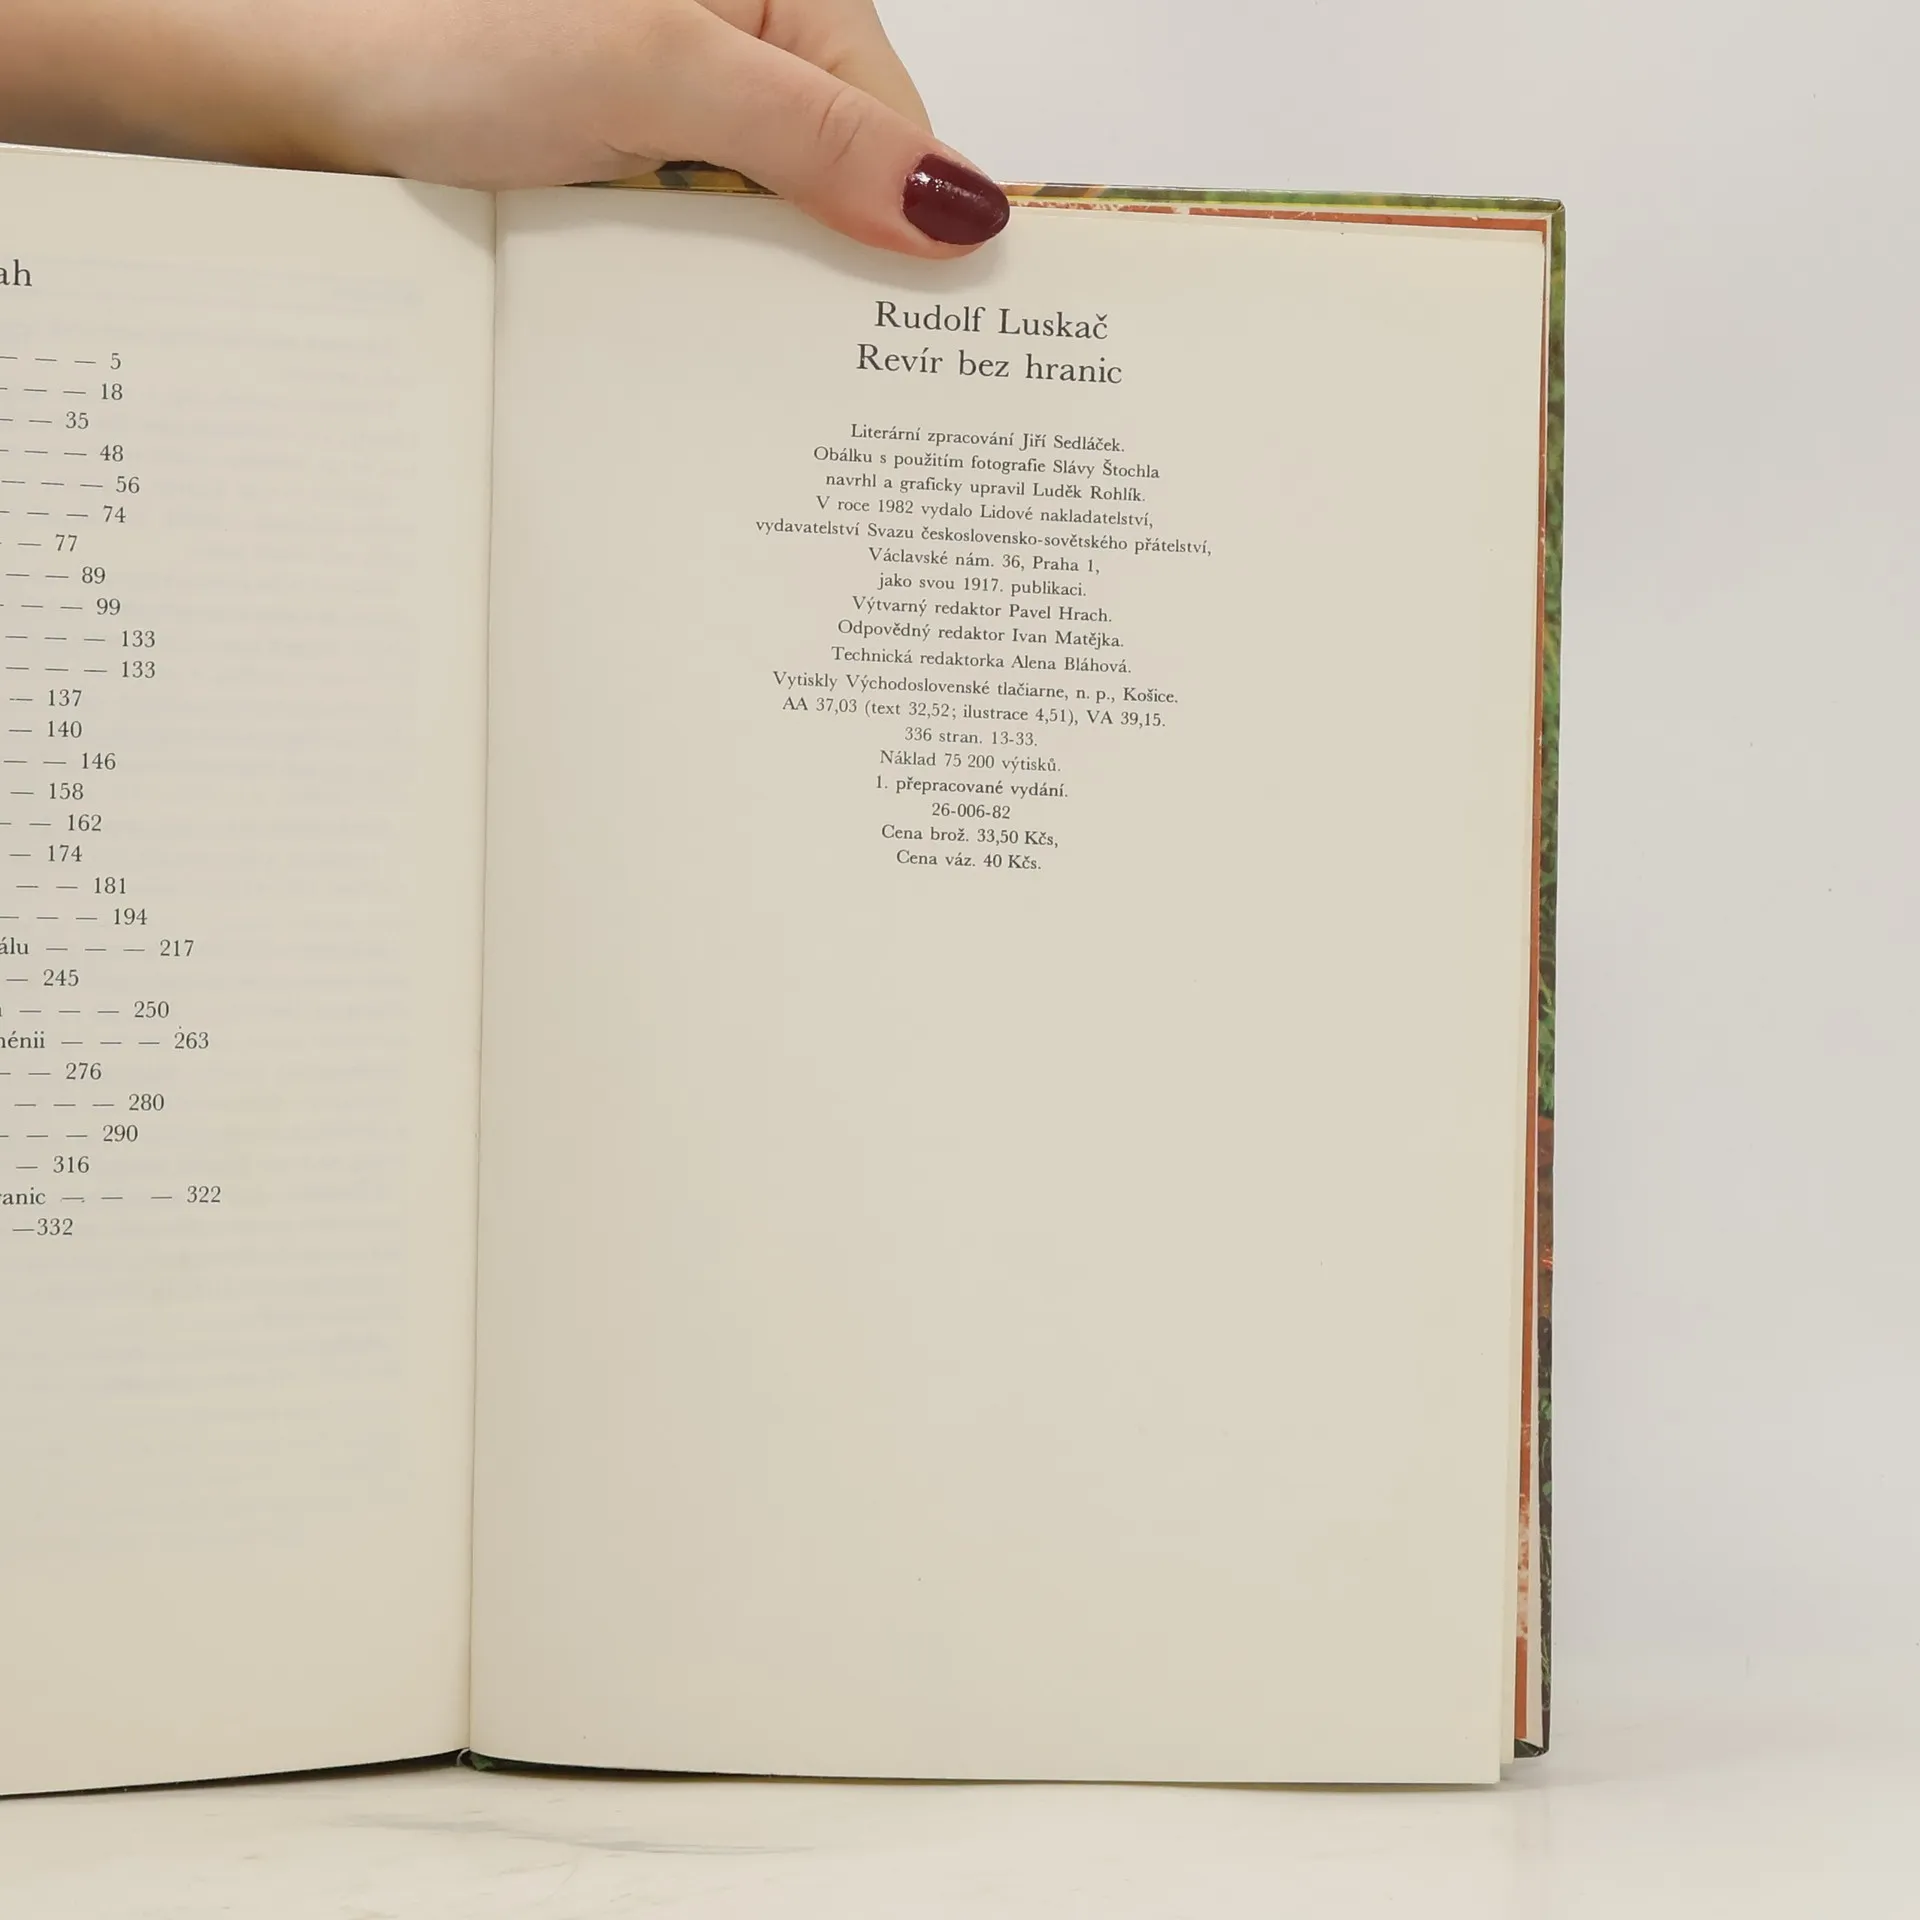 — — — 5
— — — 18
— — 35
— — — 48
— — — — 56
— — — 74
— 77
— — 89
— — — 99
— — — 133
— — — 133
— 137
— 140
— — 146
— 158
— — 162
— 174
— — 181
— — — 194
— — — 217
— 245
— — — 250
— — — 263
— — 276
— — — 280
— — — 290
— 316
— — — 322
—332
Rudolf Luskač
Revír bez hranic
Literární zpracování Jiří Sedláček.
Obálku s použitím fotografie Slávy Štochla
navrhl a graficky upravil Luděk Rohlík.
V roce 1982 vydalo Lidové nakladatelství,
vydavatelství Svazu československo-sovětského přátelství,
Václavské nám. 36, Praha 1,
jako svou 1917. publikaci.
Výtvarný redaktor Pavel Hrach.
Odpovědný redaktor Ivan Matějka.
Technická redaktorka Alena Bláhová.
Vytiskly Východoslovenské tlačiarne, n. p., Košice.
AA 37,03 (text 32,52; ilustrace 4,51), VA 39,15.
336 stran. 13-33.
Náklad 75 200 výtisků.
1. přepracované vydání.
26-006-82
Cena brož. 33,50 Kčs,
Cena váz. 40 Kčs.